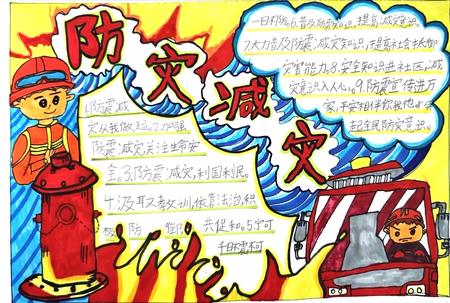 防灾减灾
1.防震减
灾从我做起。2.加强
防震减灾关注生命安
全。3.防震减灾,利国利民。
4.汲取教训,依靠法治,积
防御 共促和。5.宁可
千日不震不可
一日不防。6.普及防震知识,提高减灾意识
7.大力普及防震减灾知识,提高社会抗御
灾害能力。8.安全知识进社区,减
灾意识入人心。9.防震宣传进万
家,平安相伴你我他
起全民防灾意识。